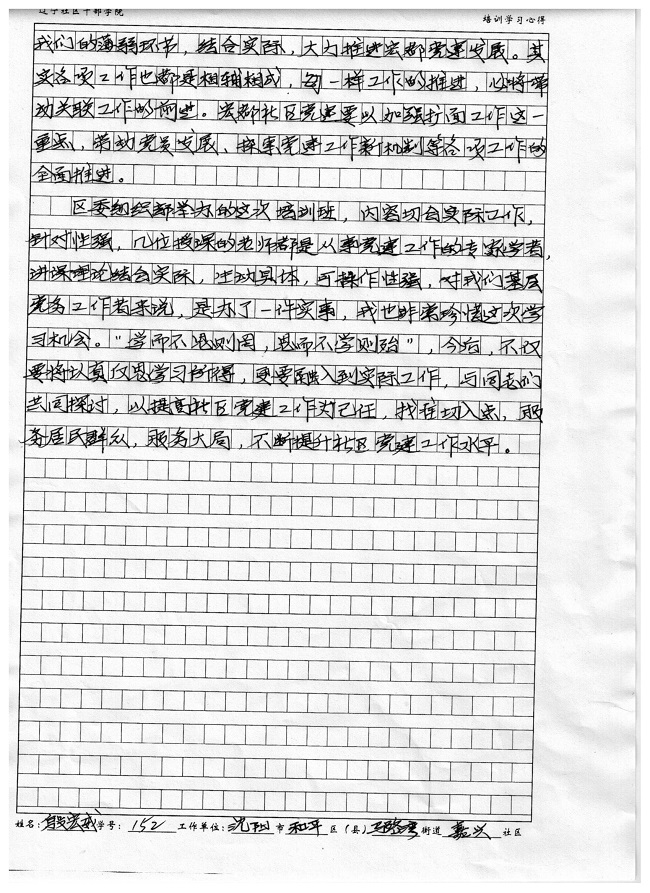 辽宁社区干部学院
培训学习心得
我们的薄弱环节，结合实际，大力推进宏都党建发展。其
实各项工作也都是相辅相成，每一样工作的推进，必将带
动关联工作的前进。宏都社区党建要以加强扩面工作这一
重点，带动党员发展、探索党建工作新机制等各项工作的
全面推进。
区委组织部举办的这次培训班，内容切合实际工作，
针对性强，几位授课的老师都是从事党建工作的专家学者，
讲课理论结合实际，生动具体，可操作性强，对我们基层
党务工作者来说，是办了一件实事，我也非常珍惜这次学
习机会。“学而不思则罔，思而不学则殆”，今后，不仅
要将认真反思学习所得，更要融入到实际工作，与同志们
共同探讨，以提高社区党建工作为己任，找准切入点，服
务居民群众，服务大局，不断提升社区党建工作水平。
姓名： 学号：152 工作单位：沈阳市和平区（县） 街道 嘉兴 社区